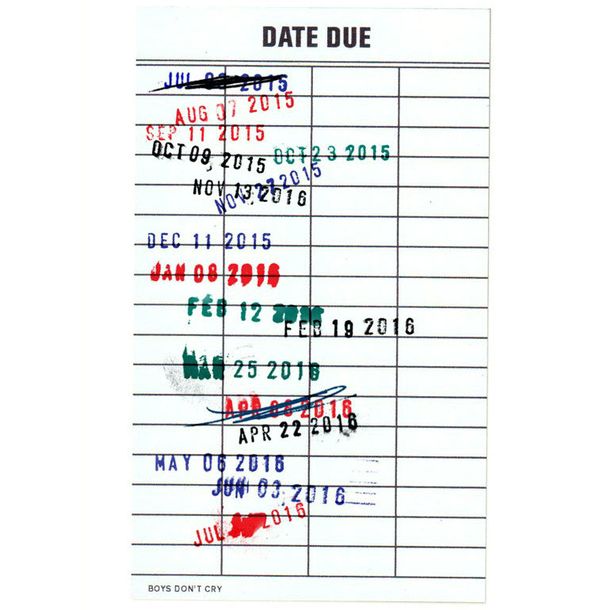 DATE DUE
JUL 2015
AUG 07 2015
SEP 11 2015
OCT 09, 2015 OCT 23 2015
NOV 13, 2016 NOV 27 2015
DEC 11 2015
JAN 08 2016
FEB 12
FEB 19 2016
MAR 25 2016
APR 2016
APR 22 2016
MAY 06 2016
JUN 03, 2016
JUL 2016
BOYS DON'T CRY